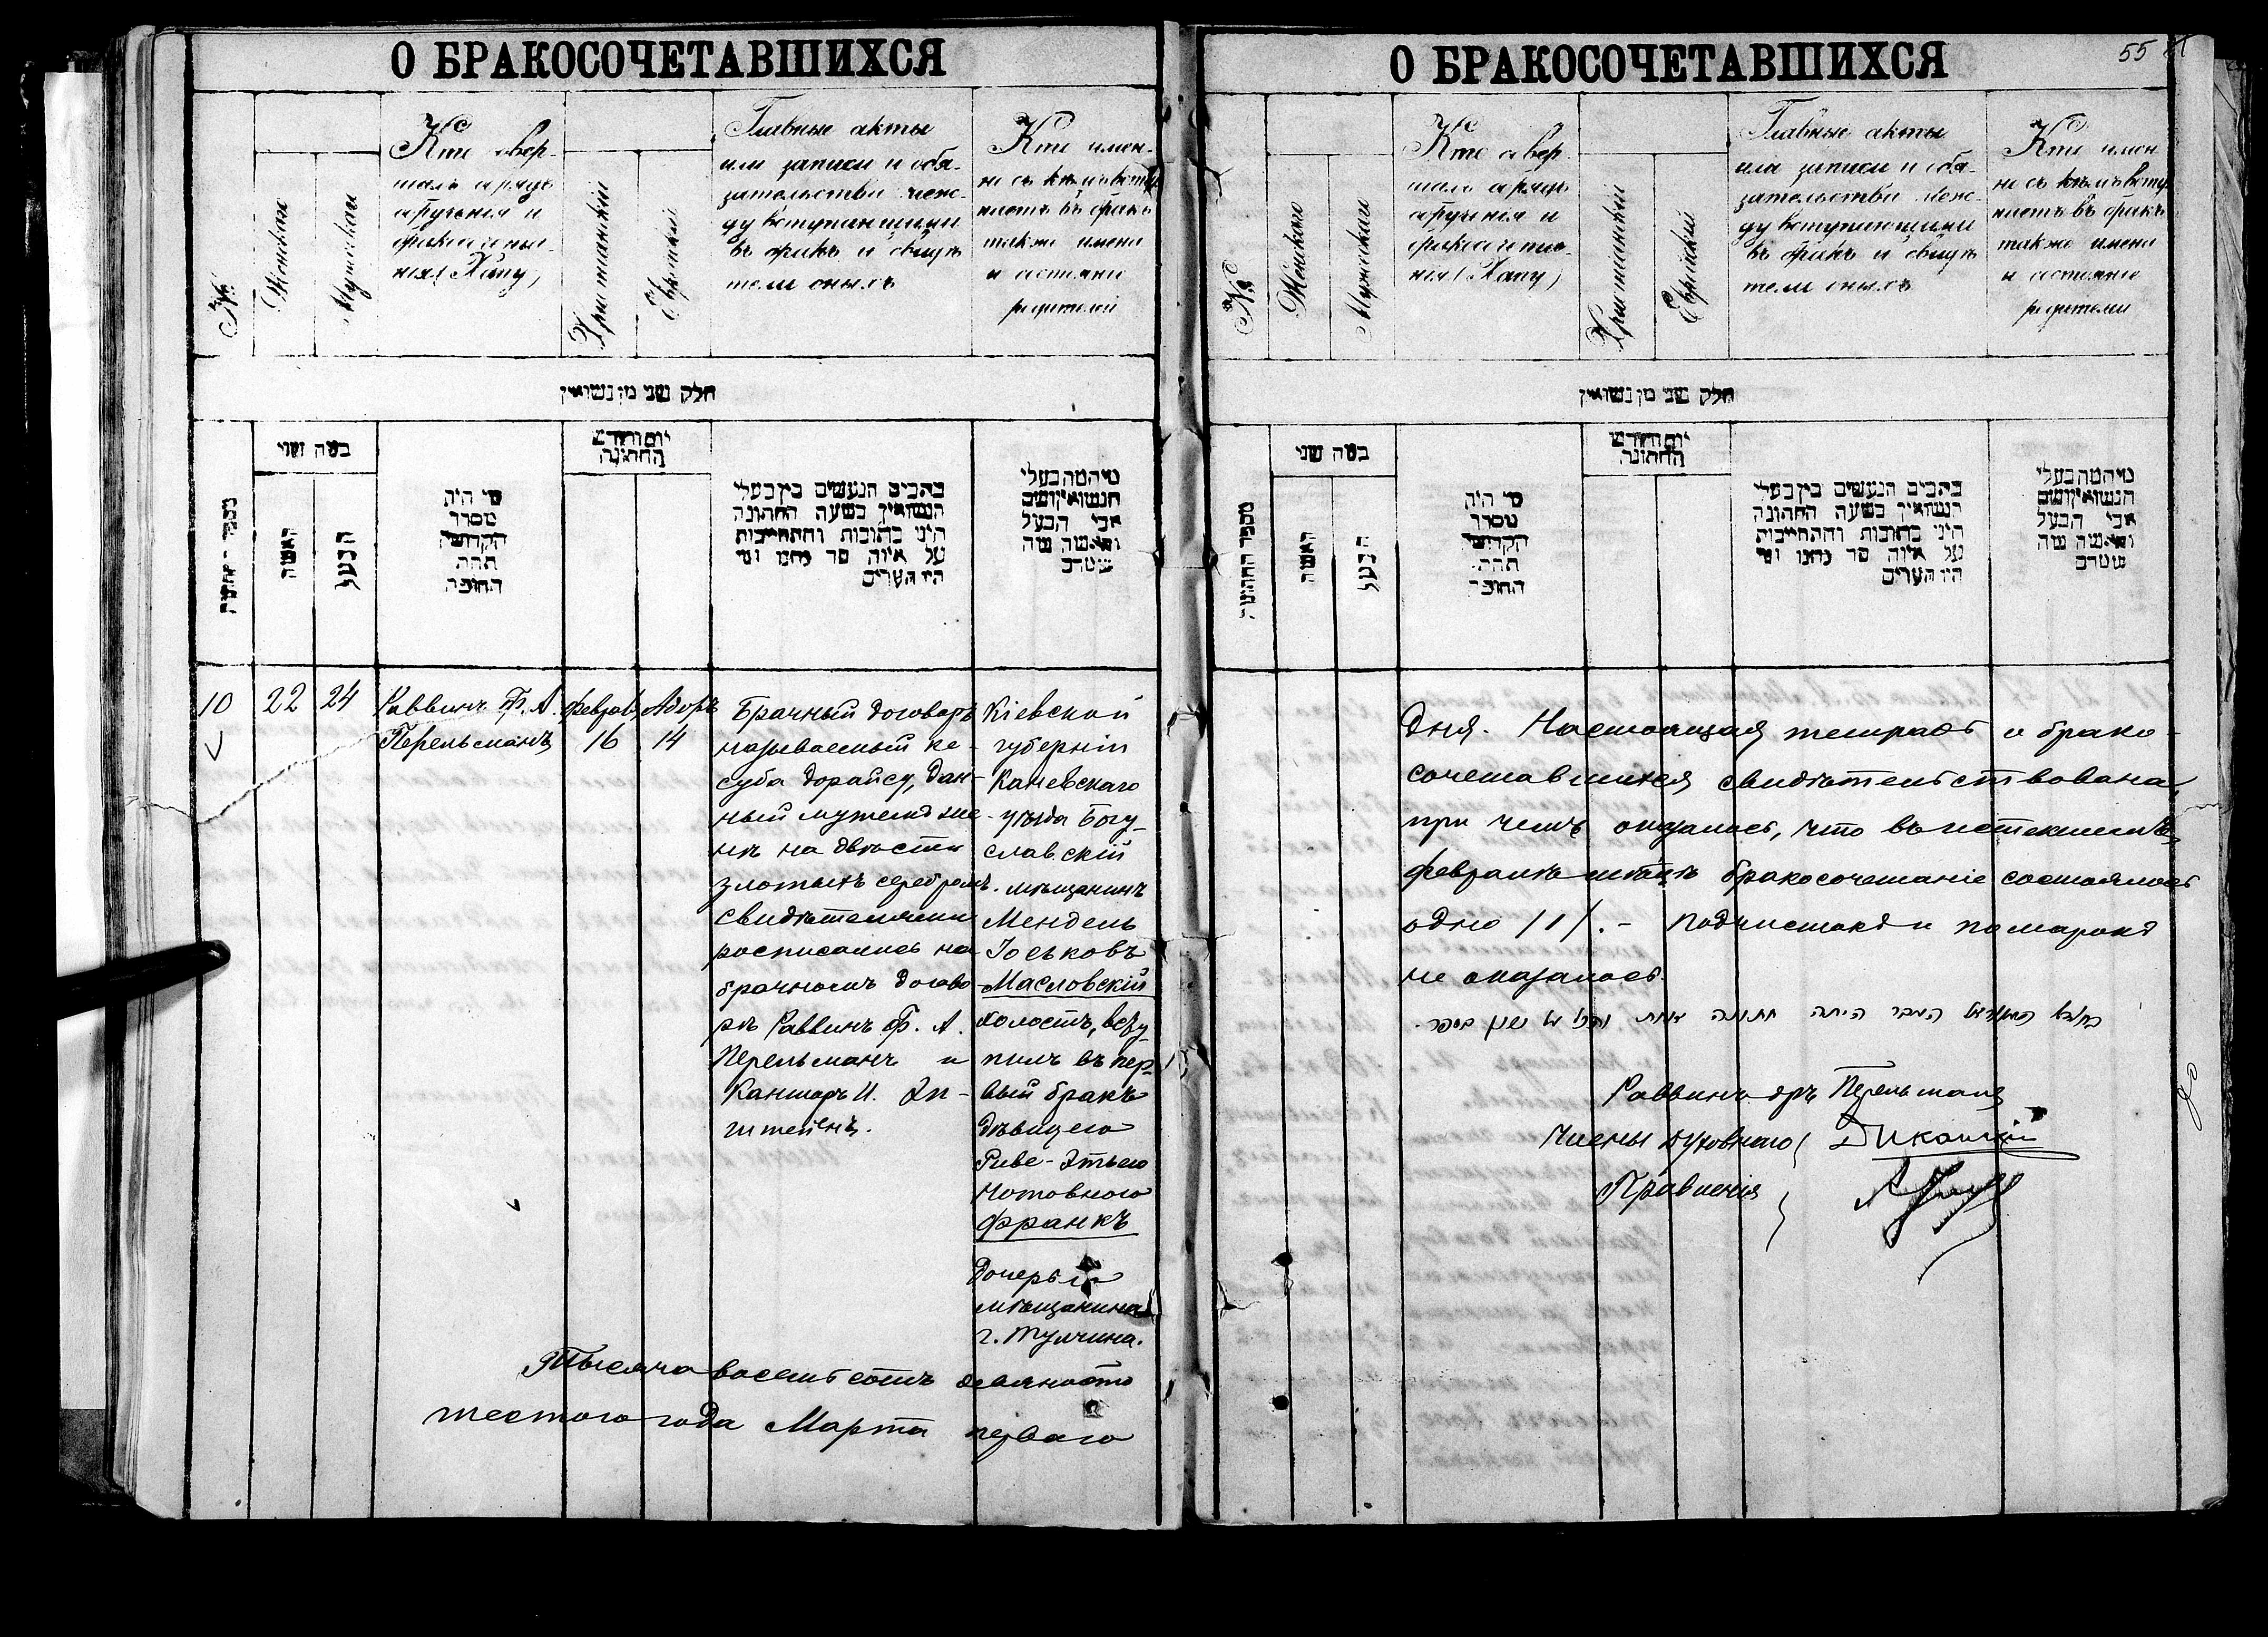 О БРАКОСОЧЕТАВШИХСЯ
№
Женскаго
Мужескаго
Кто совер-
шалъ обрядъ
обрученія и
бракосочета-
нія (Хупу)
Христіанскій
Еврейскій
Главные акты
или записи и обя-
зательства меж-
ду вступающими
въ бракъ и свидѣ-
тели оныхъ
Кто имен-
но съ кѣмъ всту-
паетъ въ бракъ
также имена
и состояніе
родителей
חלק שני מן נשואין
כמה שני
האשה
הבעל
מי היה
מסדר
הקדושין
תחת
החופה
יום וחודש
החתונה
כתבים הנעשים בין בעלי
הנשואין בשעה החתונה
היינו כתובות והתחייבות
על איזה סך נחמו ומי
היו העדים
מי המה בעלי
הנשואין ושם
אבי הבעל
והאשה מה
שמם
10 22 24
Раввинъ Ф. А.
Перельманъ
Феврал. 16
Адоръ 14
Брачный договоръ
называемый ке-
суба дорайсу, дан-
ный мужемъ же-
нѣ на двѣсти
злотыхъ серебромъ.
Свидѣтелями
росписались на
брачномъ догово
рѣ Раввинъ Ф. А.
Перельманъ и
Канторъ И. Эп-
штейнъ.
Кіевской
губерніи
Каневскаго
уѣзда Богу-
славскій
мѣщанинъ
Мендель
Іоськовъ
Масловскій
холостъ, всту
пилъ въ пер-
вый бракъ
съ дѣвицею
Риве-Этьею
Мотовною
Франкъ
дочерью
мѣщанина
г. Тульчина.
Тысяча восемьсотъ девяносто
шестого года Марта перваго
О БРАКОСОЧЕТАВШИХСЯ
55
№
Женскаго
Мужескаго
Кто совер-
шалъ обрядъ
обрученія и
бракосочета-
нія (Хупу)
Христіанскій
Еврейскій
Главные акты
или записи и обя-
зательства меж-
ду вступающими
въ бракъ и свидѣ-
тели оныхъ
Кто имен-
но съ кѣмъ всту-
паетъ въ бракъ
также имена
и состояніе
родителей
חלק שני מן נשואין
כמה שני
מספר החתונה
האשה
הבעל
מי היה
מסדר
הקדושין
תחת
החופה
יום וחודש
החתונה
כתבים הנעשים בין בעלי
הנשואין בשעה החתונה
היינו כתובות והתחייבות
על איזה סך נחמו ומי
היו העדים
מי המה בעלי
הנשואין ושם
אבי הבעל
והאשה מה
שמם
Дня. Настоящая тетрадь о брако-
сочетавшихся свидѣтельствована,
при чемъ оказалось, что въ истекшемъ
февралѣ мѣсяцѣ бракосочетаніе состоялось
одно /1/. - Подчистокъ и помарокъ
не оказалось.
העבר היתה חתונה אחת
Раввинъ др. Перельманъ
Члены Духовнаго
Правленія